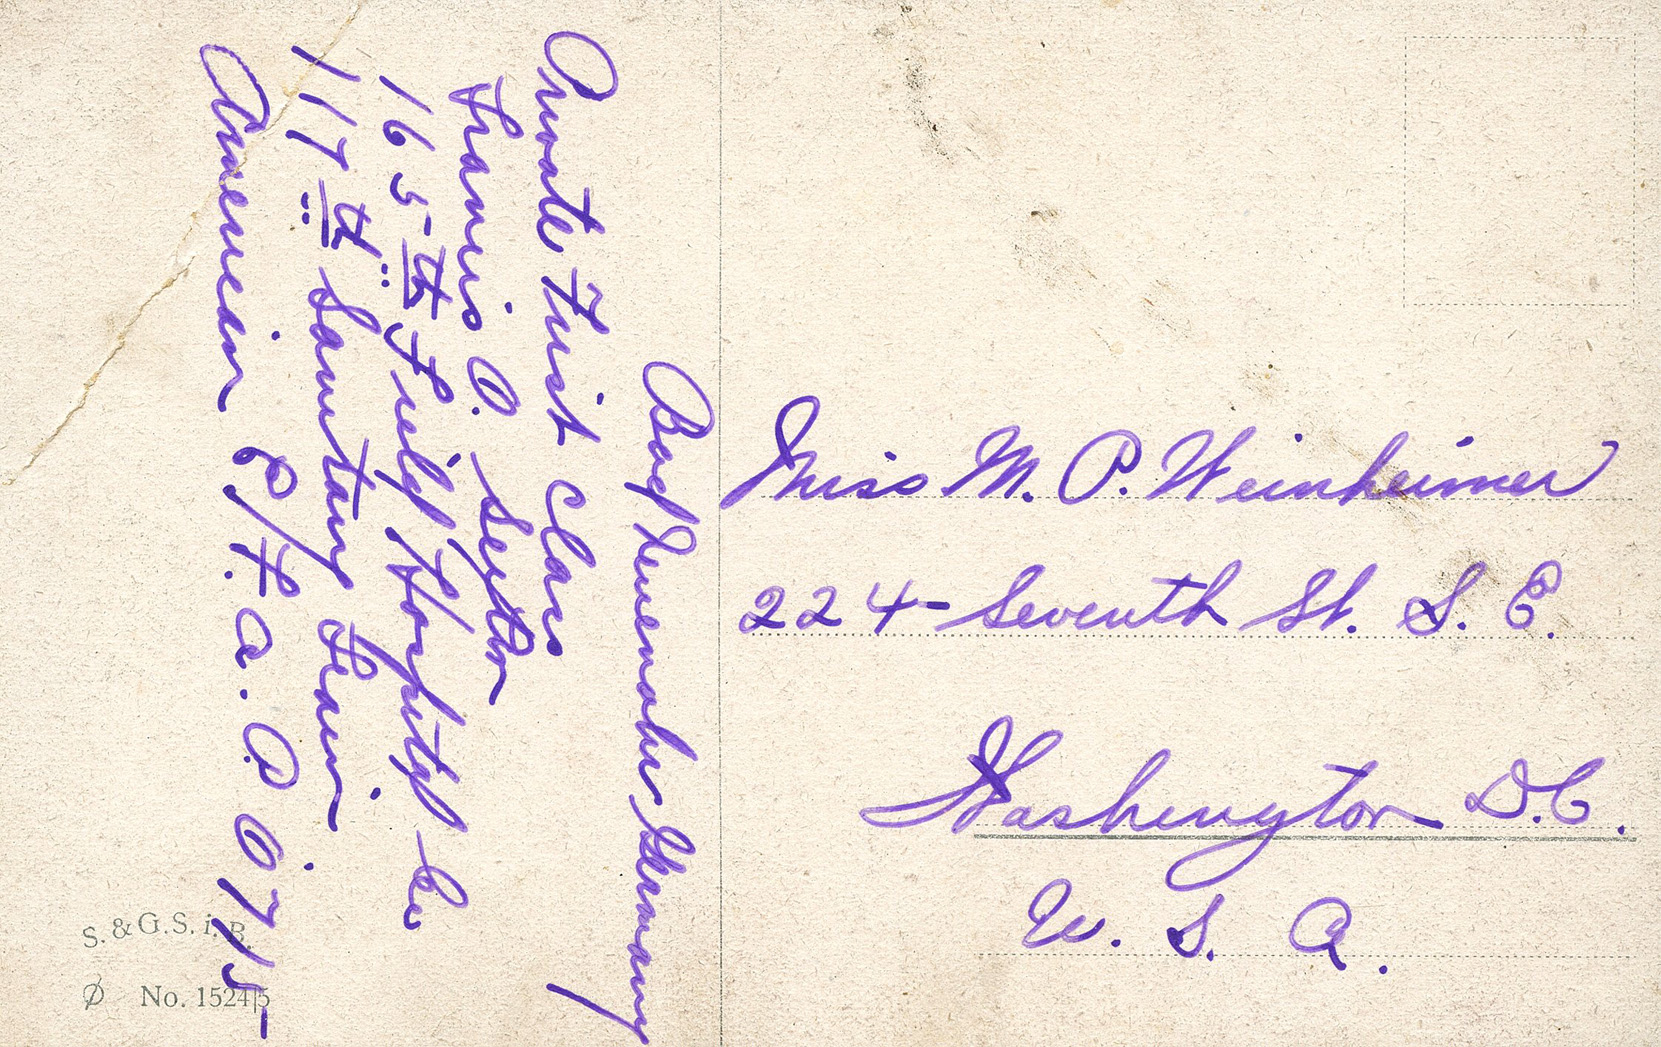 Bad Neuenahr Germany
Private First Class
Francis O. Sexton
165th Field Hospital Co
117th Sanitary Train
American E/F. A. P. O. 715
Miss M. P. Weinheimer
224 - Seventh St. S. E.
Washington D.C.
U. S. A.
S. & G. S. i. B.
No. 1524|5